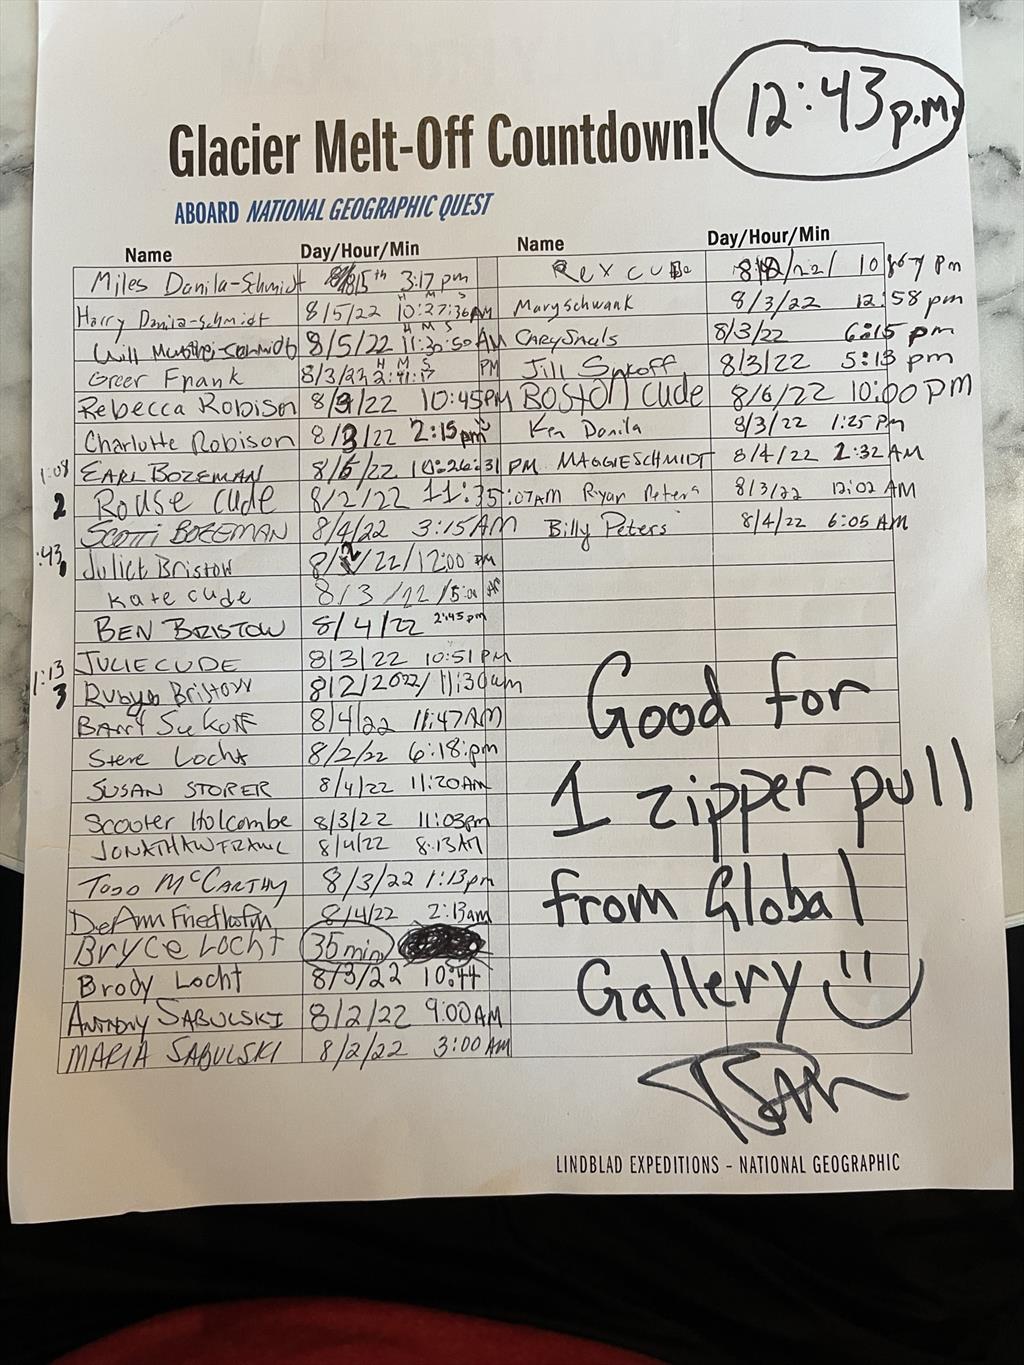 12:43 p.m.
Glacier Melt-Off Countdown!
ABOARD NATIONAL GEOGRAPHIC QUEST
Name Day/Hour/Min Name Day/Hour/Min
Miles Danila-Schmidt 8/5th 3:17 pm Rex cude /22/ 10 pm
H M S
Harry Danila-Schmidt 8/5/22 10:27:36 AM Maryschwank 8/3/22 12:58 pm
H M S
Will 8/5/22 11:30:50 AM 8/3/22 6:15 pm
H M S
Greer Frank 8/3/22 2:41:17 PM Jill Sukoff 8/3/22 5:13 pm
Rebecca Robison 8/3/22 10:45PM BOSTON Cude 8/6/22 10:00 PM
Charlotte Robison 8/3/22 2:15pm Ken Danila 8/3/22 1:25 Pm
1:08 EARL BOZEMAN 8/6/22 10:26:31 PM MAGGIE SCHMIDT 8/4/22 2:32 AM
2 Rouse cude 8/2/22 11:35:07AM Ryan Peters 8/3/22 12:02 AM
SCOTTI BOZEMAN 8/4/22 3:15AM Billy Peters 8/4/22 6:05 AM
:43 Juliet Bristow 8/2/22/12:00 PM
Kate cude 8/3/22/5:01
BEN BRISTOW 8/4/22 2:45pm
JULIE CUDE 8/3/22 10:51PM
1:13
3 Bristow 8/2/2022/11:30am
BART SUKOFF 8/4/22 11:47AM
Steve Locht 8/2/22 6:18:pm
SUSAN STORER 8/4/22 11:20AM
Scooter Holcombe 8/3/22 11:03pm
JONATHAN 8/4/22 8:13AM
TODD McCARTHY 8/3/22 1:13pm
DeAnn 8/4/22 2:13am
Bryce Locht 35min
Brody Locht 8/3/22 10:44
ANTHONY SABULSKI 8/2/22 9:00AM
MARIA SABULSKI 8/2/22 3:00 AM
Good for
1 zipper pull
from Global
Gallery
LINDBLAD EXPEDITIONS – NATIONAL GEOGRAPHIC